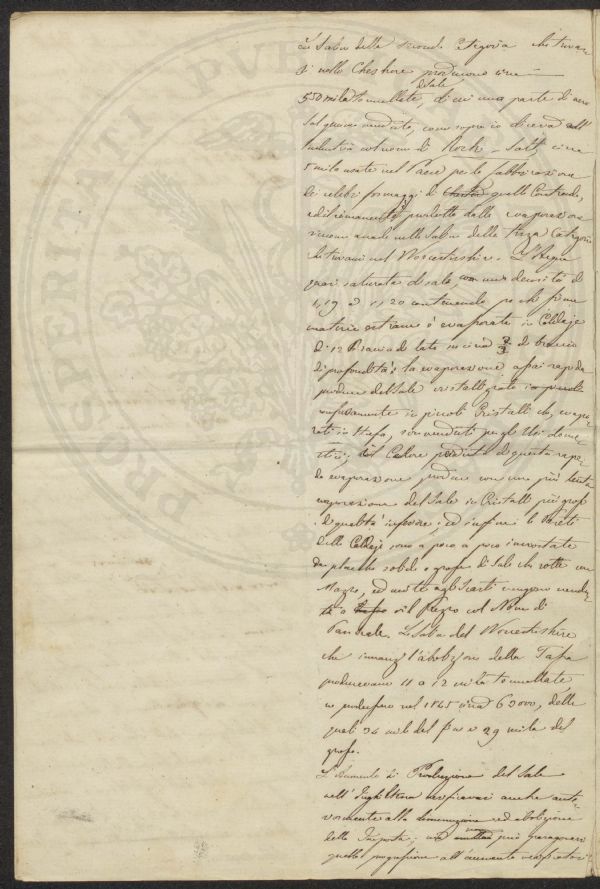 Saline della seconda Categoria che trovan
si nello Cheshire producono circa
di Sale
550 mila tonnellate, di cui una parte di
Sal gemma venduto, come sopra io diceva all'
industria col nome di Rock-Salt circa
5 mila usate nel Paese per la fabbricazione
dei celebri formaggi di quelle Contrade,
ed il rimanente prodotto dalla evaporazione
viene anche nelle Saline della terza Categoria
che trovansi nel Worcestershire. L'Acqua
quasi saturata di sale, con una densità di
1,19 a 1,20 contenendo pochissime
materie estranee è evaporata in Caldaje
di 12 Braccia di lato su circa 2/3 di braccio
di profondità; la evaporazione assai rapida
produce del Sale cristallizzato
confusamente in piccoli Cristalli che, evapo-
rati in Stufa, son venduti per gli Usi dome-
stici; il Calore perduto di questa rapi-
da evaporazione produce con una più lenta
evaporazione del Sale in Cristalli più grossi
di qualità inferiore; ed infine le Pareti
delle Caldaje sono a poco a poco incrostate
da placche solide e grosse di Sale che rotte con
Mazze, ed unite agli Scarti vengono vendu-
te a vil Prezzo col Nome di
Pancake. Le Saline del Worcestershire
che innanzi l'abolizione della Tassa
producevano 11 a 12 mila tonnellate,
ne produssero nel 1845 circa 63000, delle
quali 34 mila del fino e 29 mila del
grosso.
L'Aumento di Produzione del Sale
nell'Inghilterra verificavasi anche ante-
riormente alla diminuzione ed abolizione
della Imposta; ma non può paragonarsi
quella progressione all'aumento verificatosi
PROSPERITATI PVBLICAE